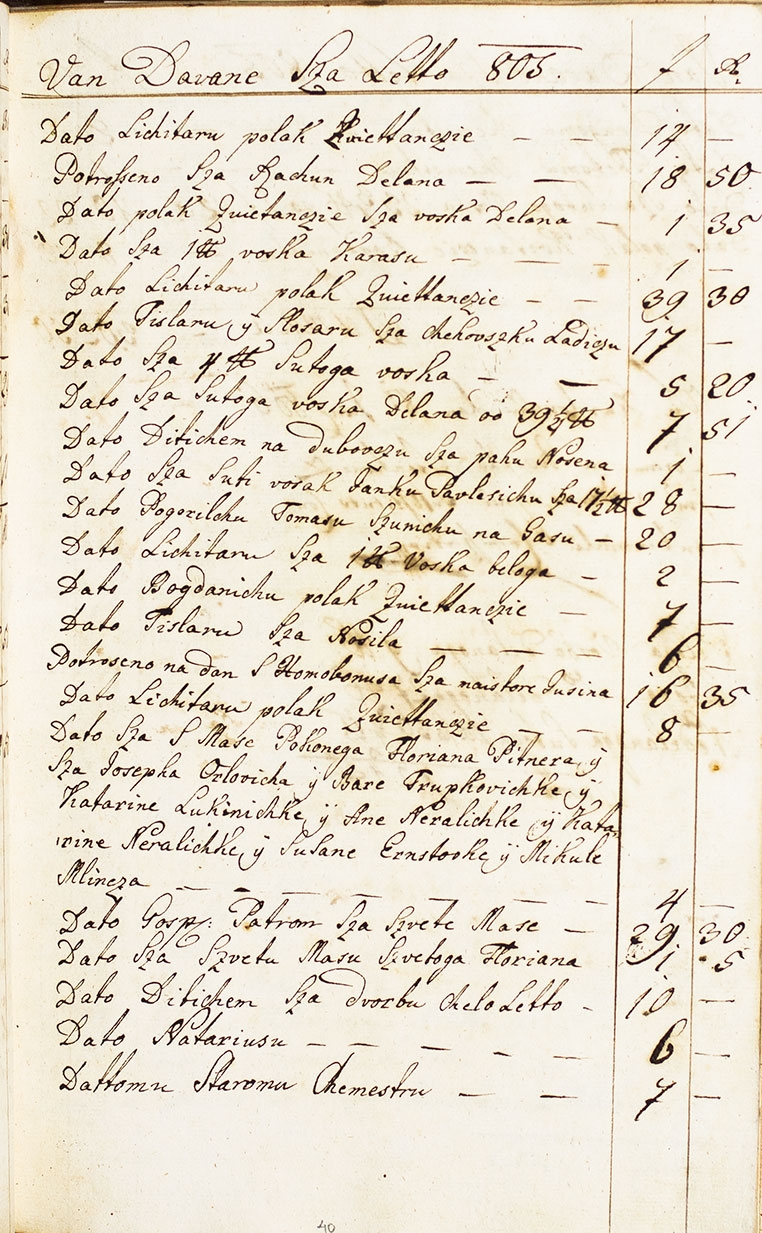 Van Davane Sza Letto 805. f R.
Dato Lichitaru polak Kviettanczie — — 14 —
Potrosseno Sza Rachun Delana — — 18 50
Dato polak Quietanczie Sza voska Delana — 1 35
Dato Sza 1 ℔ voska Karasu — — — 1 —
Dato Lichitaru polak Quiettanczie — — 39 30
Dato Tislaru ÿ Slosaru Sza chehovszku Ladiczu 17 —
Dato Sza 4 ℔ Sutoga voska — — 5 20
Dato Sza Sutoga voska Delana od 39 1/2 ℔ 7 51
Dato Ditichem na dubovczu Sza pahu Nosena 1 —
Dato Sza Suti vosak Janku Pavlesichu Sza 17 1/2 ℔ 28 —
Dato Pogorilchu Tomasu Szunichu na Gasu — 20 —
Dato Lichitaru Sza 1 ℔ Voska beloga — 2 —
Dato Bogdanichu polak Quiettanczie — 7 —
Dato Tislaru Sza Nosila — — — 6 —
Potroseno na dan S Homobonusa Sza naistore Jusina 16 35
Dato Lichitaru polak Quiettanczie — — 8 —
Dato Sza S Mase Pokonega Floriana Pitnera ÿ
Sza Josepha Orlovicha ÿ Bare Trupkovichke ÿ
Katarine Lukinichke ÿ Ane Neralichke ÿ Kata-
rine Neralichke ÿ Susane Ernstovke ÿ Mikule
Mlincza — — — — — — 4 —
Dato Gosp: Patrom Sza Szvete Mase — 29 30
Dato Sza Szvetu Masu Szvetoga Floriana 1 5
Dato Ditichem Sza dvorbu chelo Letto — 10 —
Dato Notariusu — — — — — 6 —
Dattomu Staromu Chemestru — — 7 —
40